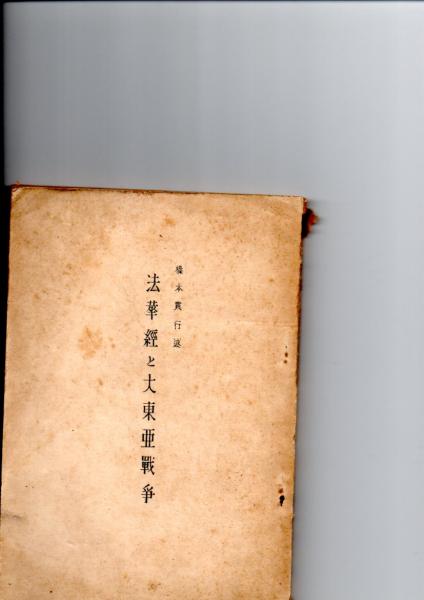 橋本貫行述
法華經と大東亜戰爭